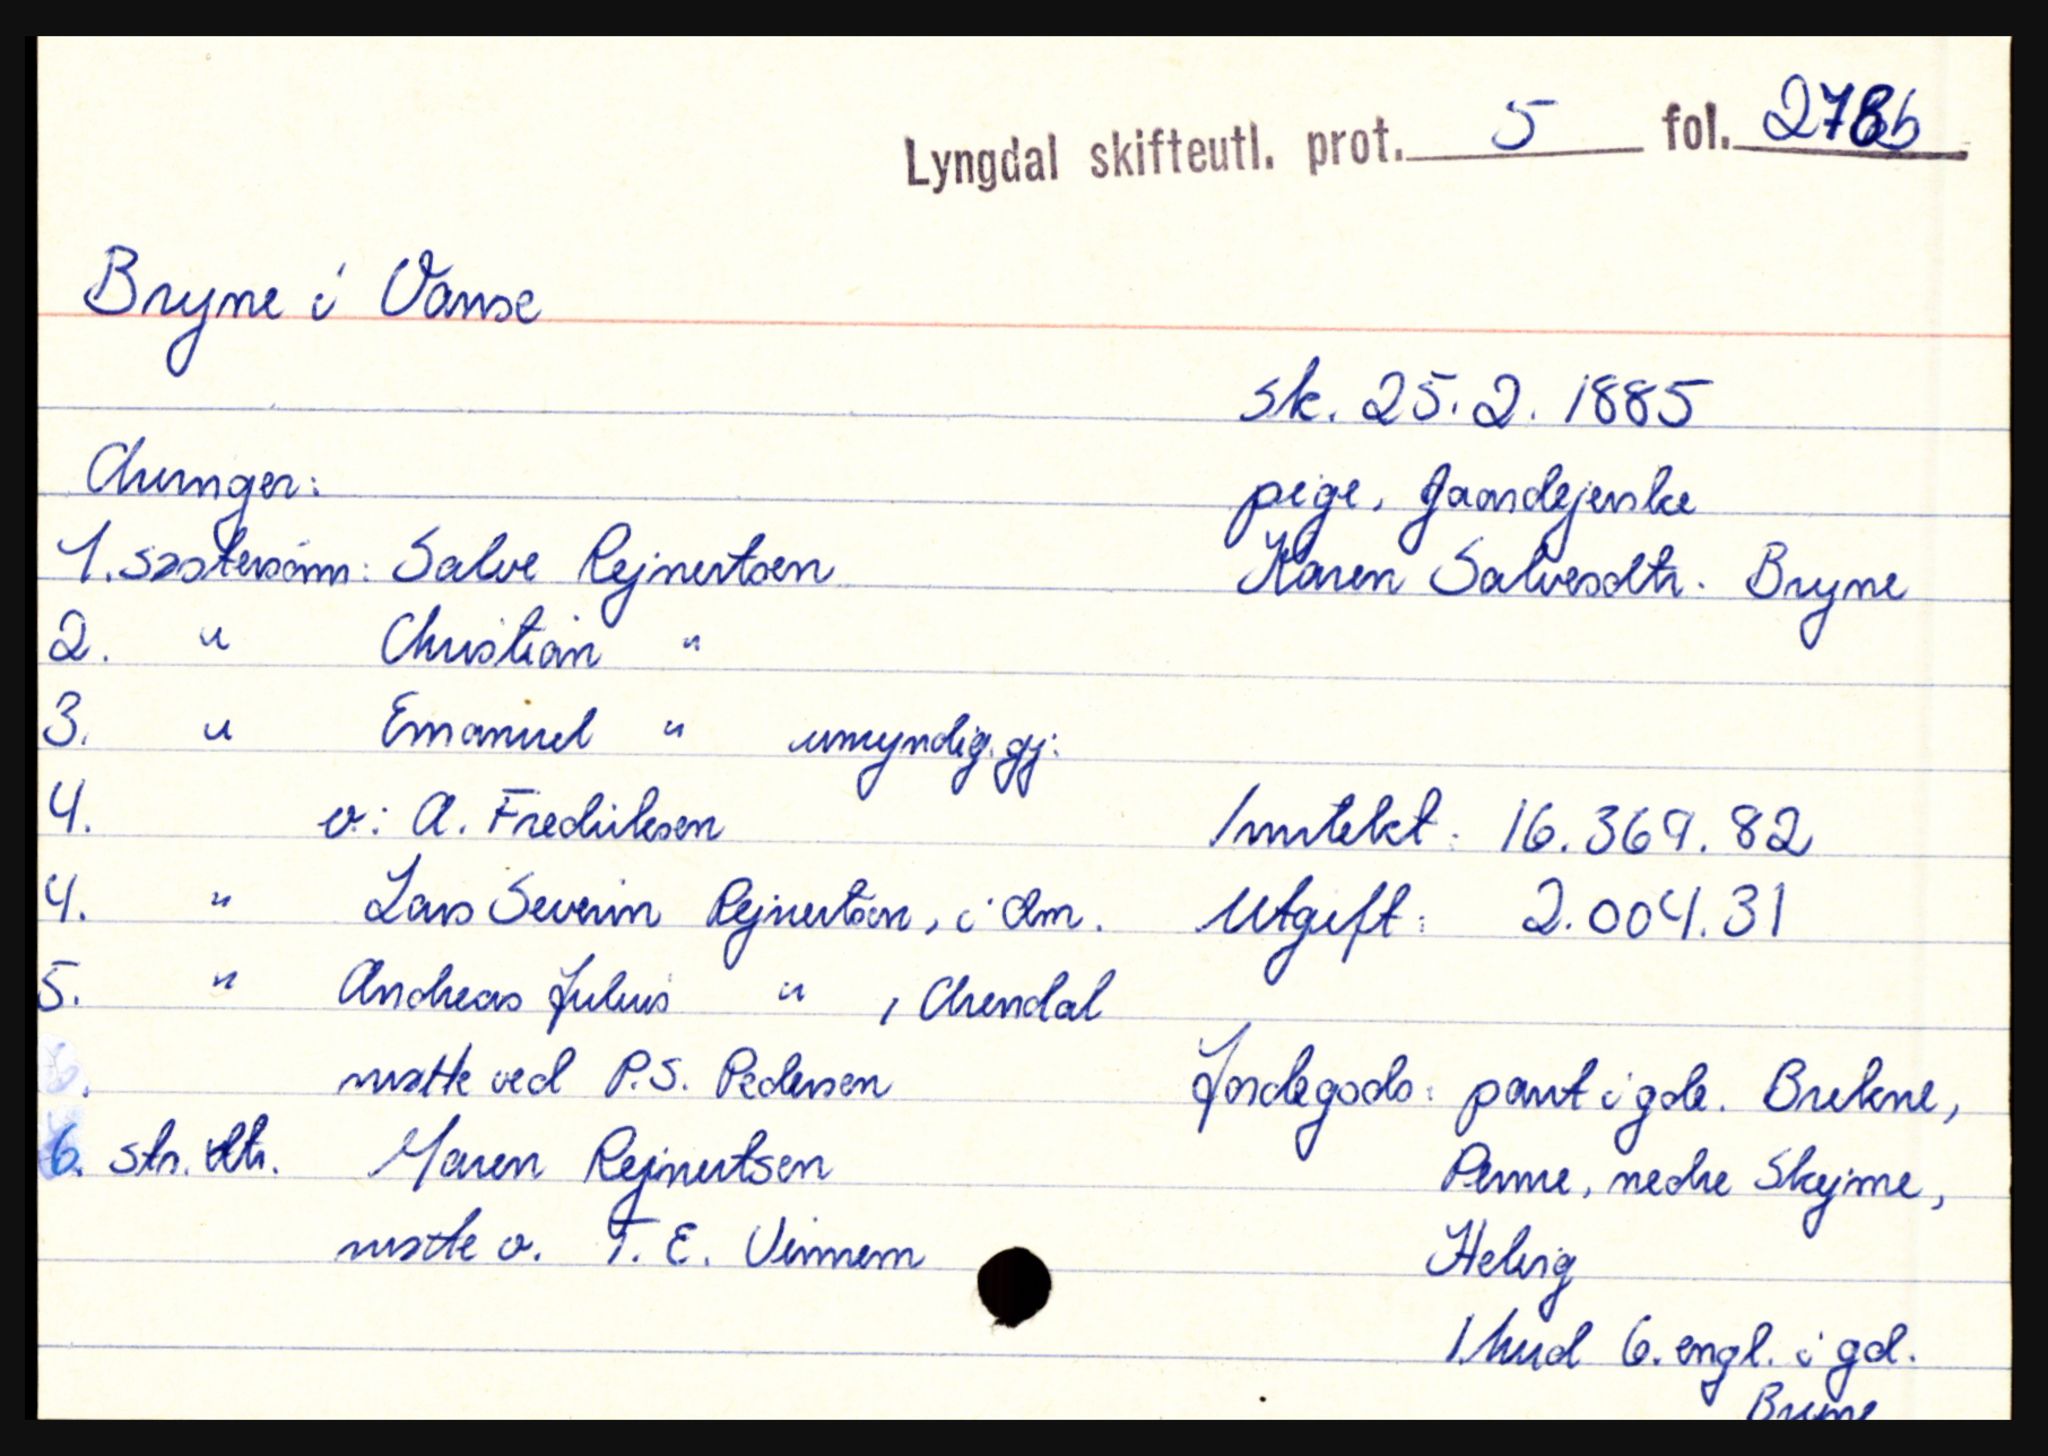 Lyngdal skifteutl. prot. 5 fol. 278b
Bryne i Vanse
sk. 25.2.1885
Arvinger:
pige, Gaardejerske
1. søstersønn: Salve Rejnertsen
Karen Salvesdtr. Bryne
2. " Christian "
3. " Emanuel " umyndig. gj:
4. v: A. Fredriksen
Inntekt: 16.369.82
4. " Lars Severin Rejnertsen, i Am.
Utgift: 2.004.31
5. " Andreas Julius " , Arendal
møtte ved P.S. Pedersen
Jordegods: pant i gde. Brekne,
6. str. dtr. Maren Rejnertsen
Penne, nedre Skejme,
møtte v. T. E. Vinnem
Helvig
1 hud 6. engl. i gd.
Bryne